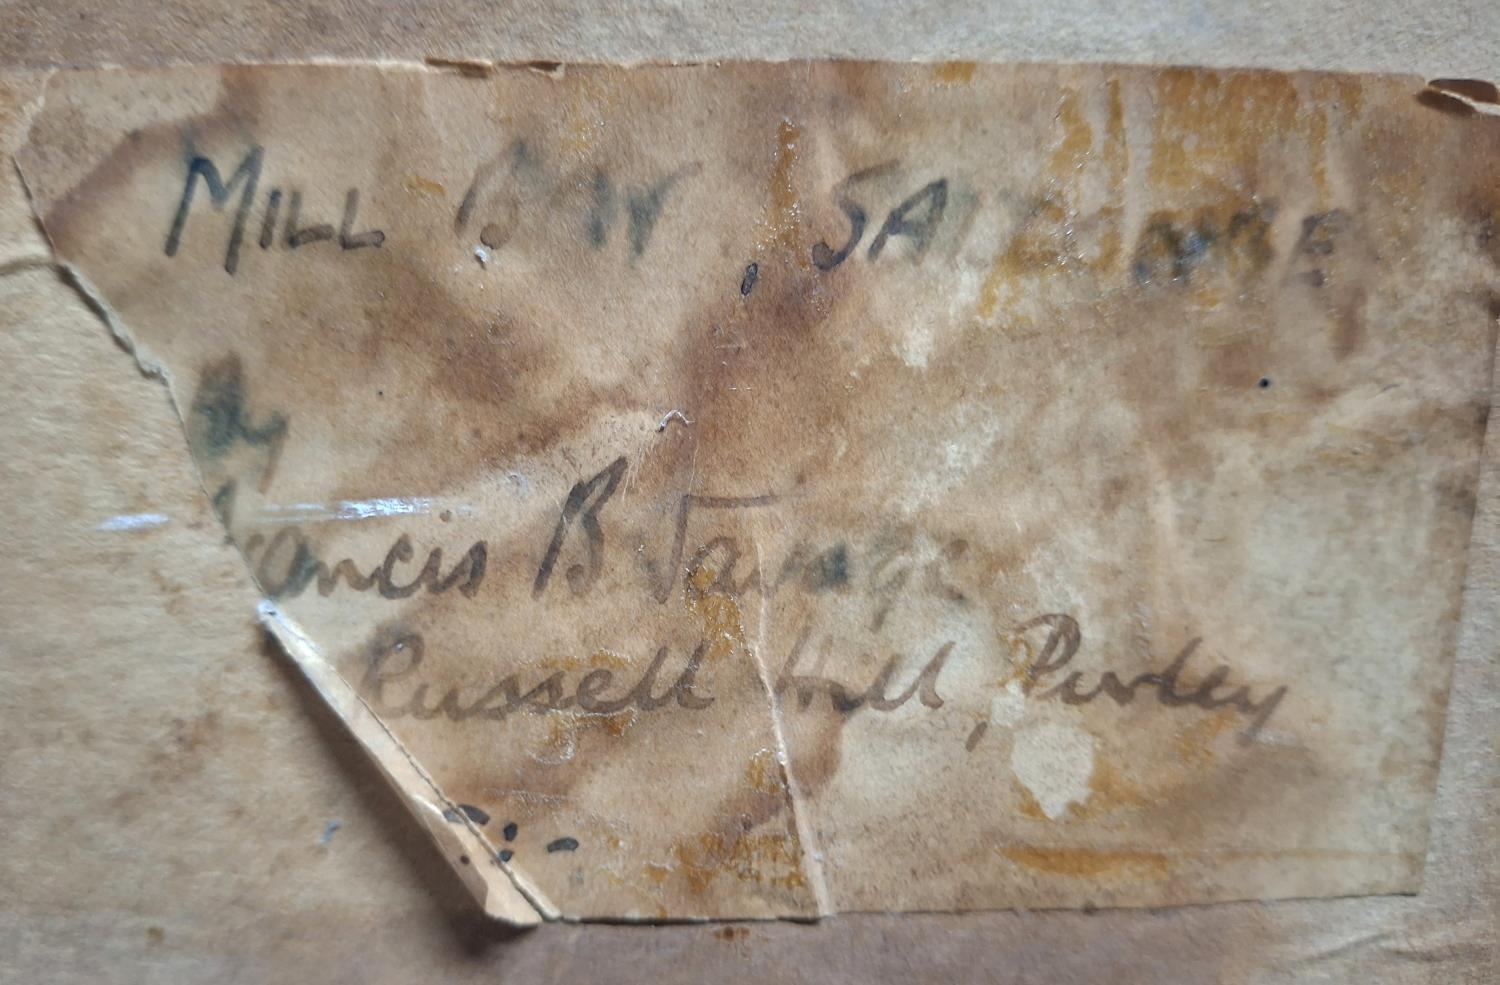 MILL BAY, SALCOMBE
by
Francis B Savage
Russell Hill, Purley